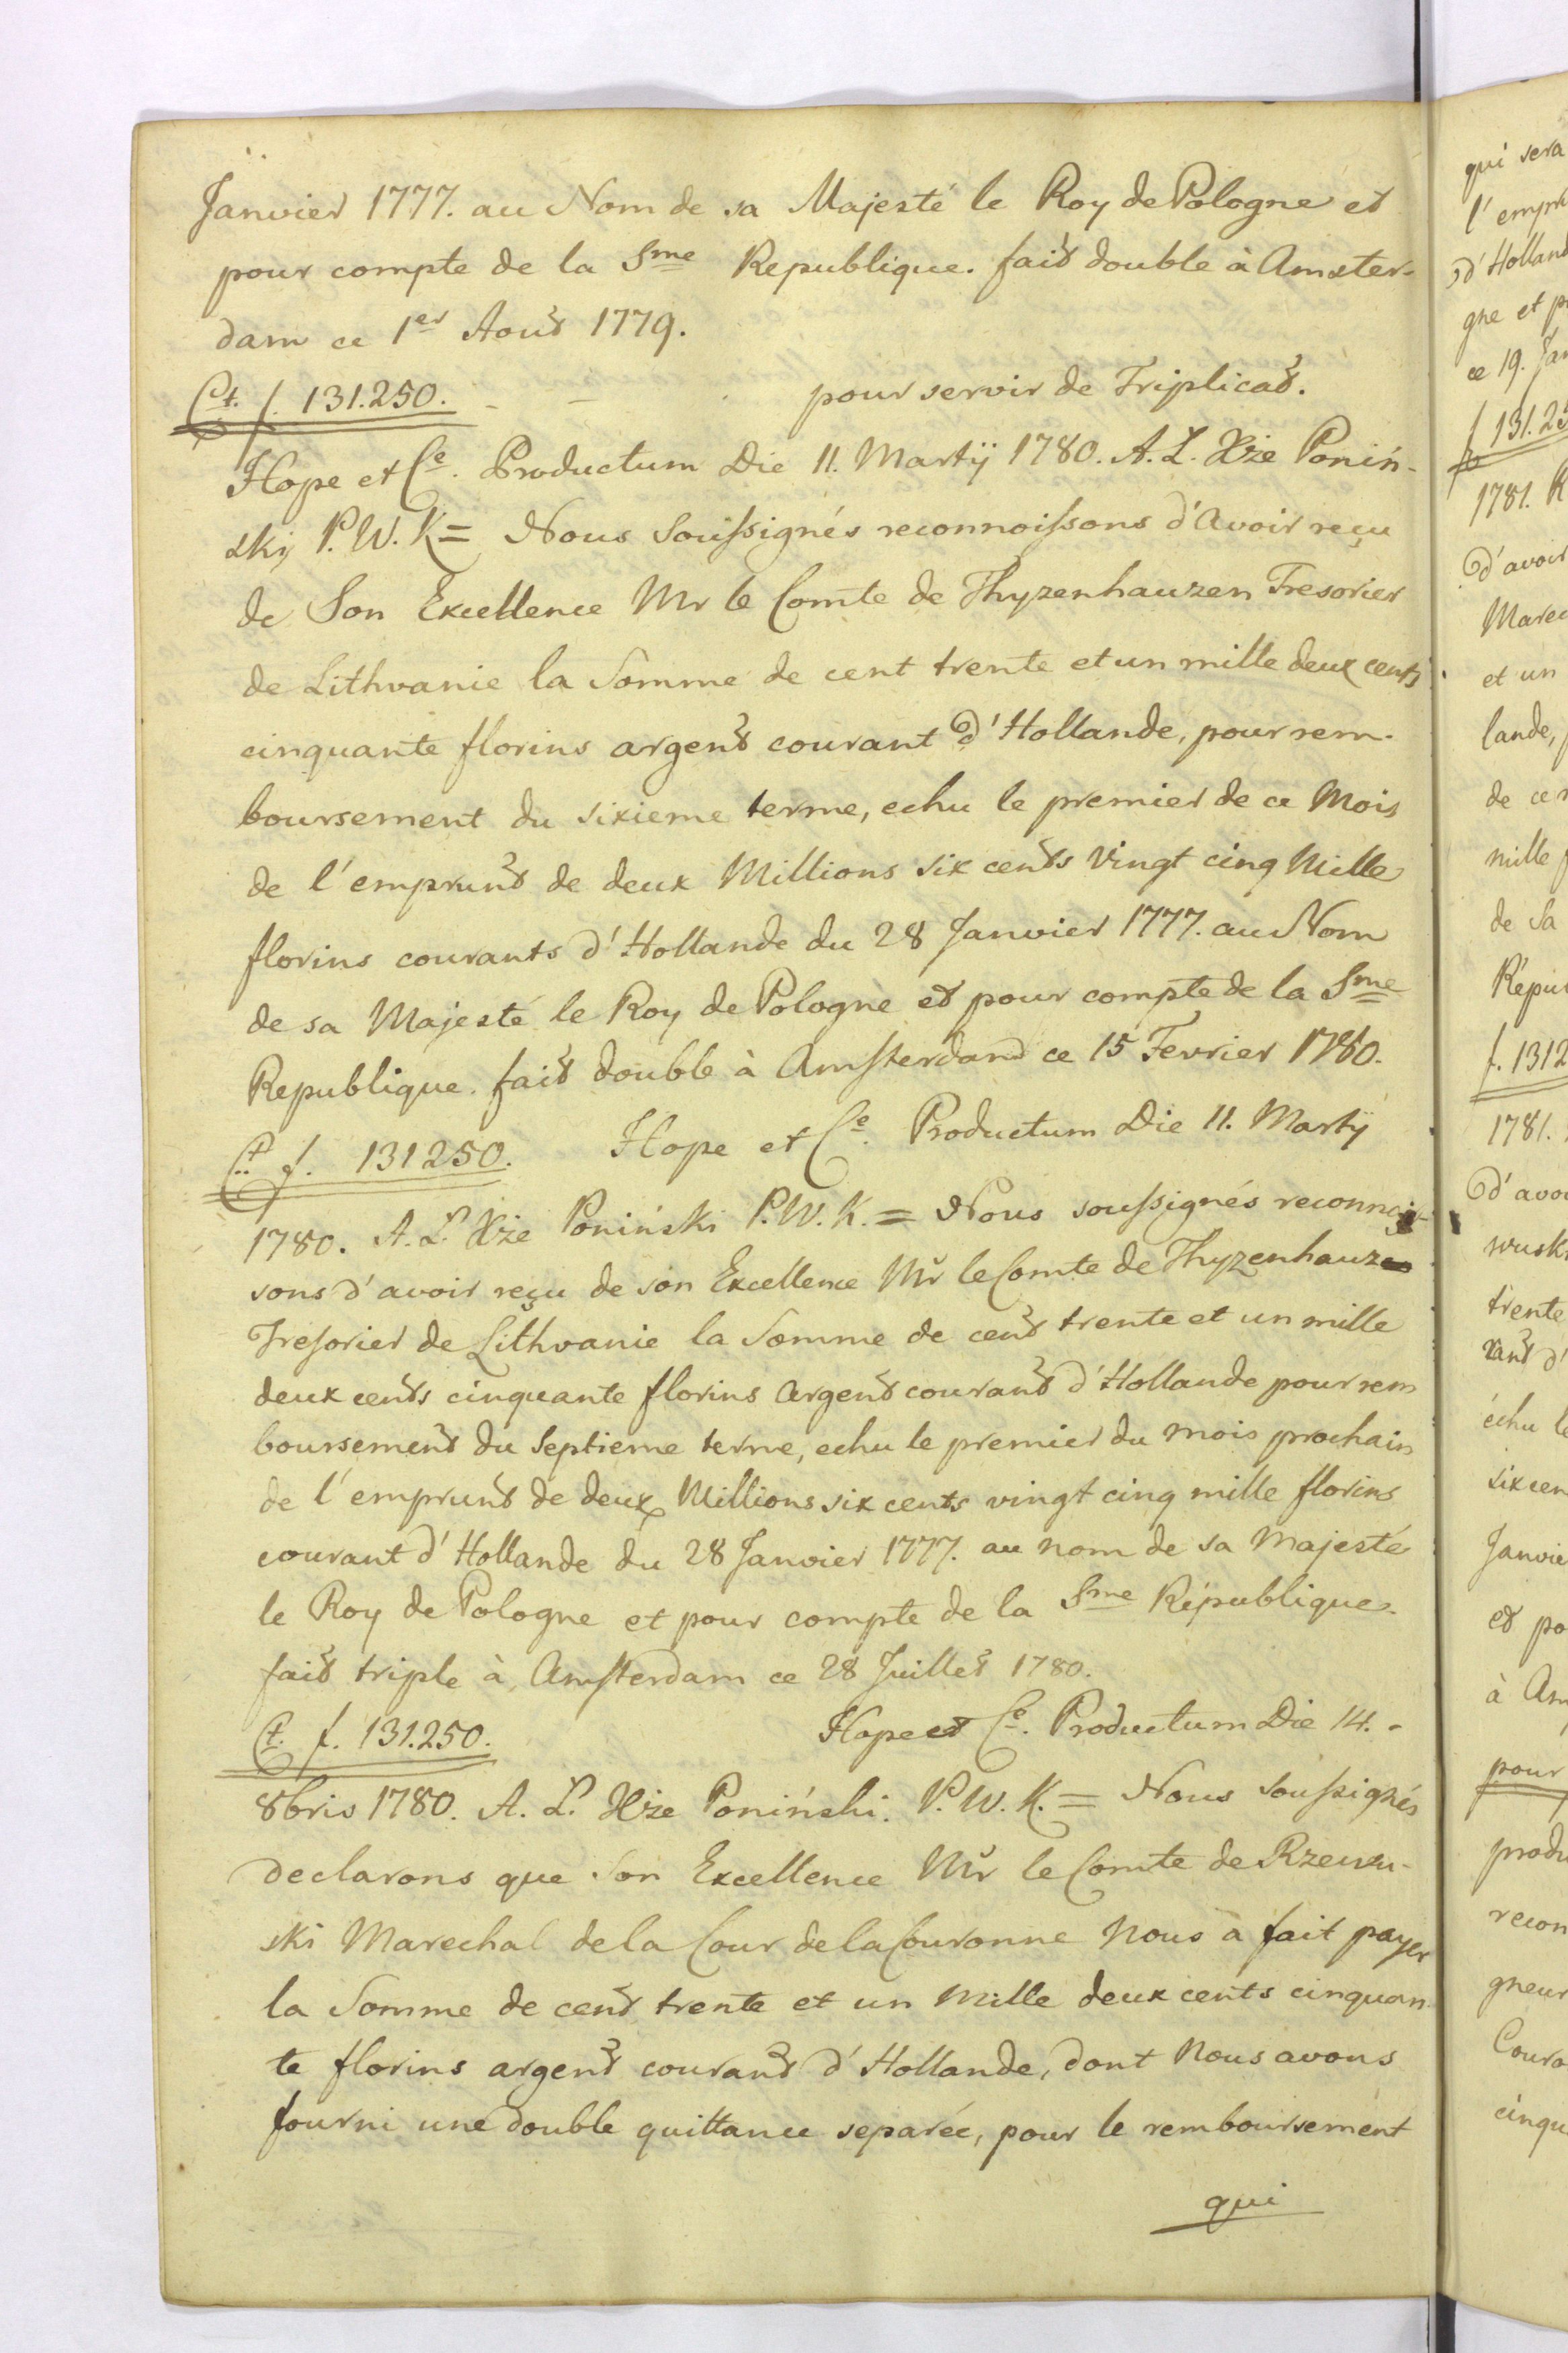 Janvier 1777. au Nom de sa Majesté le Roy de Pologne et
pour compte de la Sme Republique. fait double à Amster-
dam ce 1er Aout 1779.
Ct. f. 131.250. - - pour servir de Triplicat.
Hope et Ce. Productum Die 11. Martÿ 1780. A. Ł. Xże Poniń-
ski P. W. K = Nous Soussignés reconnoissons d'Avoir reçu
de Son Excellence Mr le Comte de Thyzenhauzen Tresorier
de Lithvanie la Somme de cent trente et un mille deux cents
cinquante florins argent courant d'Hollande, pour rem-
boursement du sixieme terme, echu le premier de ce Mois
de l'emprunt de deux Millions six cents Vingt cinq Mille
florins courants d'Hollande du 28 Janvier 1777. au Nom
de sa Majesté le Roy de Pologne et pour compte de la Sme
Republique. fait double à Amsterdam ce 15 Fevrier 1780.
Ct. f. 131250. Hope et Ce. Productum Die 11. Martÿ
1780. A. Ł. Xże Poniński P. W. K. = Nous soussignés reconnois-
sons d'avoir reçu de son Excellence Mr le Comte de Thyzenhauzen
Tresorier de Lithvanie la Somme de cent trente et un mille
deux cents cinquante florins argent courant d'Hollande pour rem
boursement du Septieme terme, echu le premier du mois prochain
de l'emprunt de deux Millions six cents vingt cinq mille florins
courant d'Hollande du 28 Janvier 1777. au nom de sa Majesté
le Roy de Pologne et pour compte de la Sme Républiquè.
fait triple à Amsterdam ce 28 Juillet 1780.
Ct. f. 131.250. Hope et Ce. Productum Die 14. -
8bris 1780. A. Ł. Xże Poniński. P. W. K. = Nous Soussignés
declarons que Son Excellence Mr le Comte de Rzewu-
ski Marechal de la Cour de la Couronne Nous a fait payer
la Somme de cent trente et un Mille deux cents cinquan
te florins argent courant d'Hollande, dont Nous avons
fourni une double quittance separée, pour le remboursement
qui
qui sera
d'Holland
gne et
ce 19.
1781.
d'avoir
et un
lande,
mille
de Sa
1781.
trente
échu
à
pour